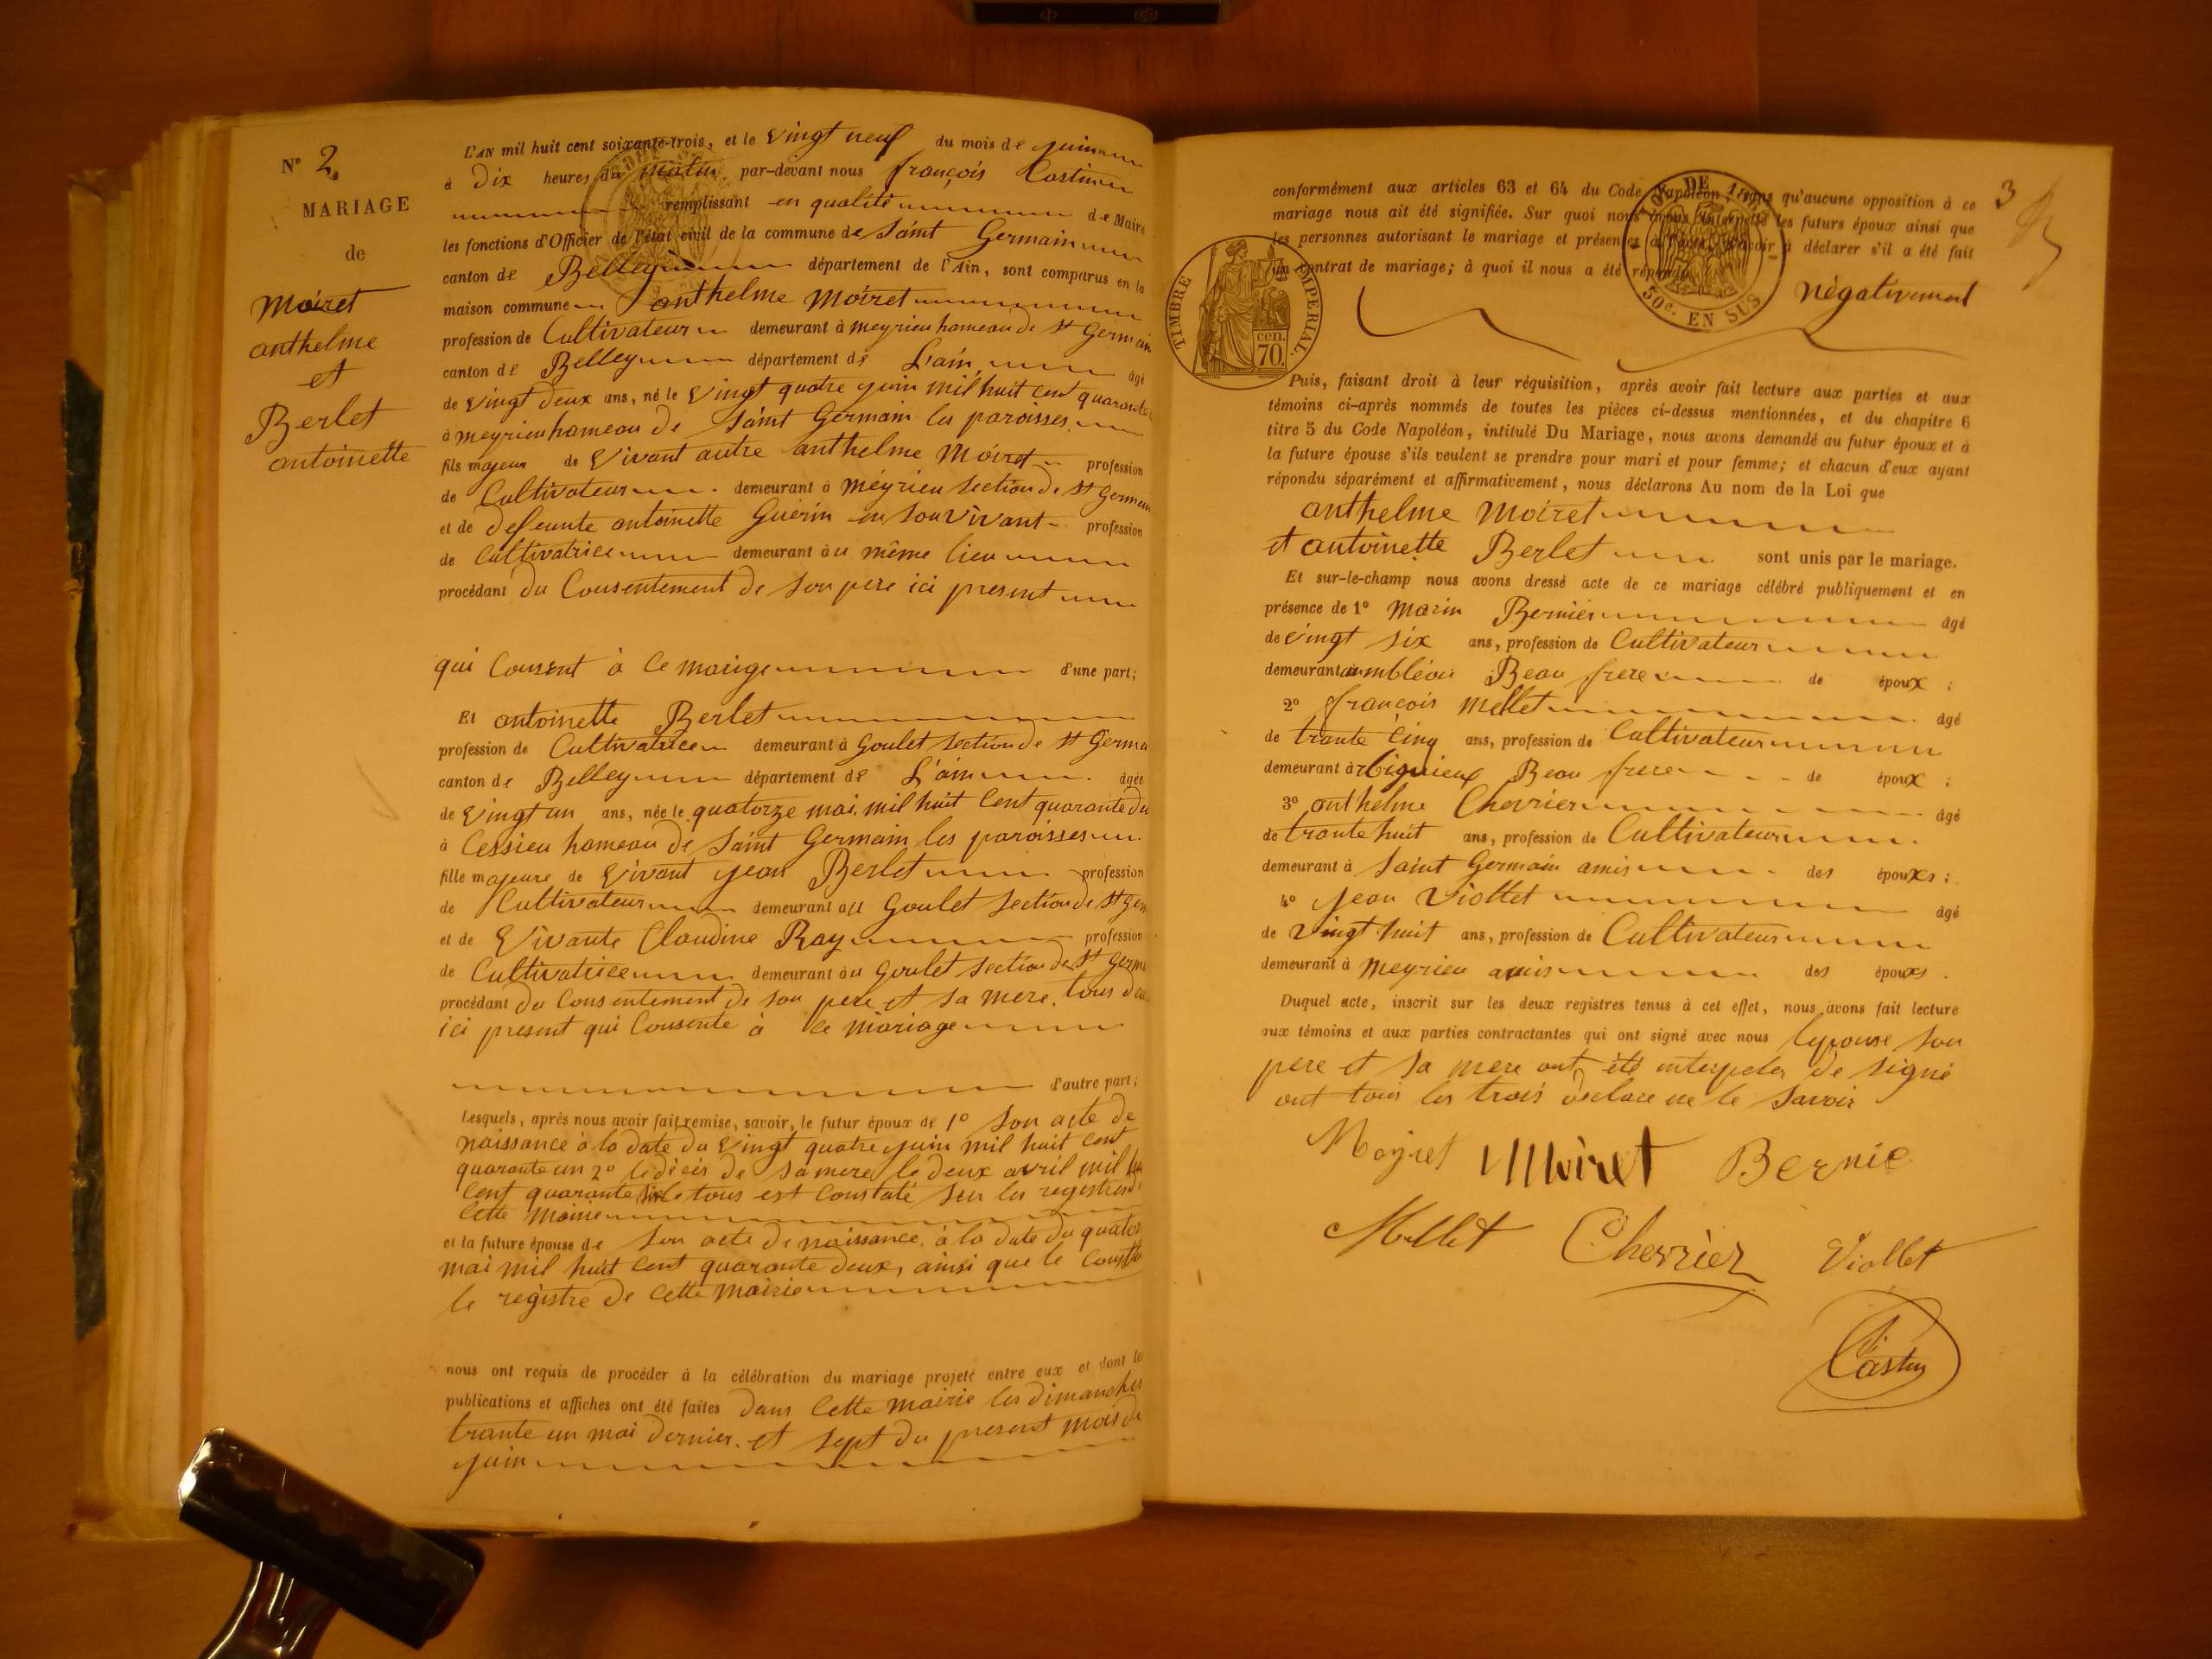 N° 2
MARIAGE
de
Moiret
anthelme
et
Berlet
antoinette
L'AN mil huit cent soixante-trois, et le vingt neuf du mois de juin
à dix heures du matin par-devant nous françois Castin
remplissant en qualité de Maire
les fonctions d'Officier de l'état civil de la commune de Saint Germain
canton de Belley département de l'Ain, sont comparus en la
maison commune anthelme Moiret
profession de Cultivateur demeurant à meyrieu hameau de St Germain
canton de Belley département de L'ain âgé
de vingt deux ans, né le vingt quatre juin mil huit cent quarante
à meyrieu hameau de Saint Germain les paroisses
fils majeur de Vivant autre anthelme Moiret profession
de Cultivateur demeurant à méyrieu Section de St Germain
et de defeunte antoinette Guerin en son vivant profession
de Cultivatrice demeurant au même lieu
procédant du Consentement de son pere ici present
qui Consent à ce marige d'une part;
Et antoinette Berlet
profession de Cultivatrice demeurant à Goulet Section de St Germa
canton de Belley département de L'ain âgée
de vingt un ans, née le quatorze mai mil huit Cent quarante du
à Cessieu hameau de Saint Germain les paroisses
fille majeure de Vivant jean Berlet profession
de Cultivateur demeurant au Goulet Section de St Ger
et de Vivante Claudine Ray profession
de Cultivatrice demeurant au Goulet Section de St Germ
procédant du Consentement de son pere et sa mere tous deu
ici present qui Consente à ce mariage
d'autre part;
Lesquels, après nous avoir fait remise, savoir, le futur époux de 1° Son acte de
naissance à la date du vingt quatre juin mil huit cent
quarante un 2° le décés de sa mere le deux avril mil hui
Cent quarante le tous est Constaté Sur les registres de
Cette Mairie
et la future épouse de Son acte de naissance à la date du quator
mai mil huit Cent quarante deux, ainsi que le Constate
le registre de Cette Mairie
nous ont requis de procéder à la célébration du mariage projeté entre eux et dont les
publications et affiches ont été faites dans Cette mairie les dimanches
trante un mai dernier et sept du present mois de
juin
3
conformément aux articles 63 et 64 du Code Napoléon, sans qu'aucune opposition à ce
mariage nous ait été signifiée. Sur quoi nous avons interpellé les futurs époux ainsi que
les personnes autorisant le mariage et présentes à l'acte, d'avoir à déclarer s'il a été fait
un contrat de mariage; à quoi il nous a été répondu
négativement
LOI DE 1862
50c. EN SUS
TIMBRE IMPERIAL.
cen.
70.
Puis, faisant droit à leur réquisition, après avoir fait lecture aux parties et aux
témoins ci-après nommés de toutes les pièces ci-dessus mentionnées, et du chapitre 6
titre 5 du Code Napoléon, intitulé Du Mariage, nous avons demandé au futur époux et à
la future épouse s'ils veulent se prendre pour mari et pour femme; et chacun d'eux ayant
répondu séparément et affirmativement, nous déclarons Au nom de la Loi que
anthelme Moiret
et antoinette Berlet sont unis par le mariage.
Et sur-le-champ nous avons dressé acte de ce mariage célébré publiquement et en
présence de 1° Marin Bernier âgé
de vingt six ans, profession de Cultivateur
demeurant à ambléon Beau frere de époux ;
2° françois Mellet âgé
de trante cinq ans, profession de Cultivateur
demeurant à Beau frere de époux ;
3° anthelme Chevrier âgé
de trante huit ans, profession de Cultivateur
demeurant à Saint Germain amis des époux :
4° Jean Viollet âgé
de vingt huit ans, profession de Cultivateur
demeurant à Meyrieu amis des époux .
Duquel acte, inscrit sur les deux registres tenus à cet effet, nous avons fait lecture
aux témoins et aux parties contractantes qui ont signé avec nous lepouse Son
pere et sa mere ont été interpeler de signé
ont tous les trois declare ne le Savoir
Moiret Moiret Bernie
Mellet Chevrier Viollet
Castin